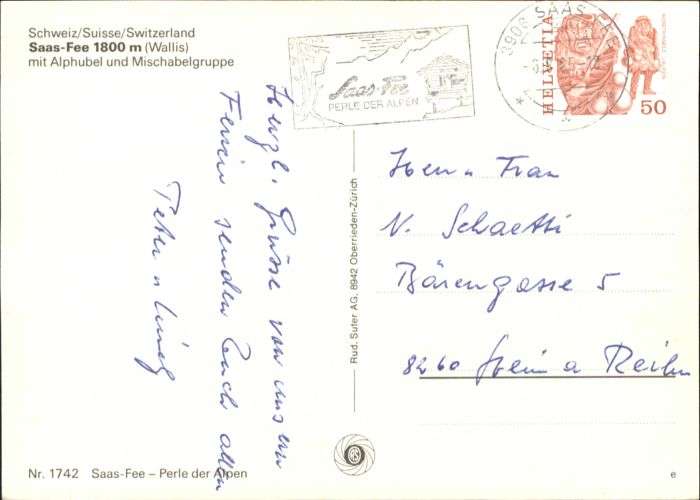 Schweiz/Suisse/Switzerland
Saas-Fee 1800 m (Wallis)
mit Alphubel und Mischabelgruppe
Saas-Fee
PERLE DER ALPEN
3906 SAAS-FEE
HELVETIA
50
Herzl. Grüsse von unseren
Ferien senden Euch allen
Peter u
Rud. Suter AG, 8942 Oberrieden-Zürich
Herr u Frau
N. Schaetti
Bärengasse 5
8260 Stein a Rhein
RS
Nr. 1742 Saas-Fee – Perle der Alpen
e